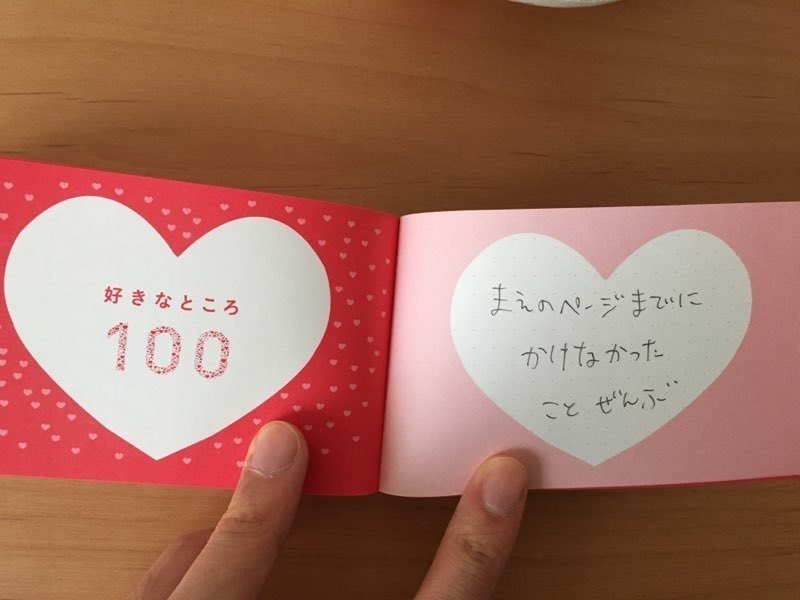 好きなところ
100
まえのページまでに
かけなかった
こと ぜんぶ